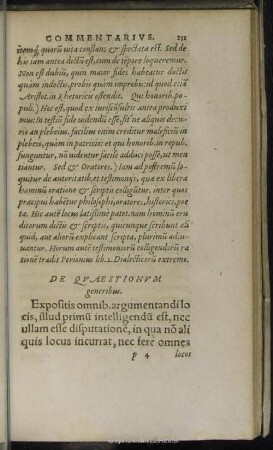 COMMENTARIVS. 231
itemq́, quorū uita constans & spectata est. Sed de
his iam antea dictū est, cum de tēpore loqueremur.
Non est dubiū, quin maior fides habeatur doctis
quàm indoctis, probis quàm improbis: id quod etiā
Aristot. in Rhetoricis ostendit. Qui honorib. po-
puli.) Hoc est, quod ex iurisc̄sultis antea produxi
mus: In testiū fide uidendū esse, sit ne aliquis decu-
rio an plebeius. facilius enim creditur malefīciū in
plebeio, quàm in patricio: et qui honorib. in repub.
funguntur, nō uidentur facilè adduci posse, ut men
tiantur. Sed & Oratores.) Iam ad postremū lo-
quitur de autoritatib. et testimonijs, quæ ex libera
hominū oratione & scriptis colligūtur. inter quos
præcipui habētur philosophi, oratores, historici, poe-
tæ. Hic autē locus latissimè patet. nam hominū eru
ditorum dictis & scriptis, quicunque scribunt ali
quid, aut aliorū explicant scripta, plurimū adiu-
uantur. Horum autē testimoniorū colligendorū ra
tionē tradit Perionius lib. 2. Dialecticorū extremo.
DE QVAESTIONVM
generibus.
Expositis omnib. argumentandi lo
cis, illud primū intelligendū est, nec
ullam esse disputationē, in qua nō ali
quis locus incurrat, nec ferè omnes
p 4 locos